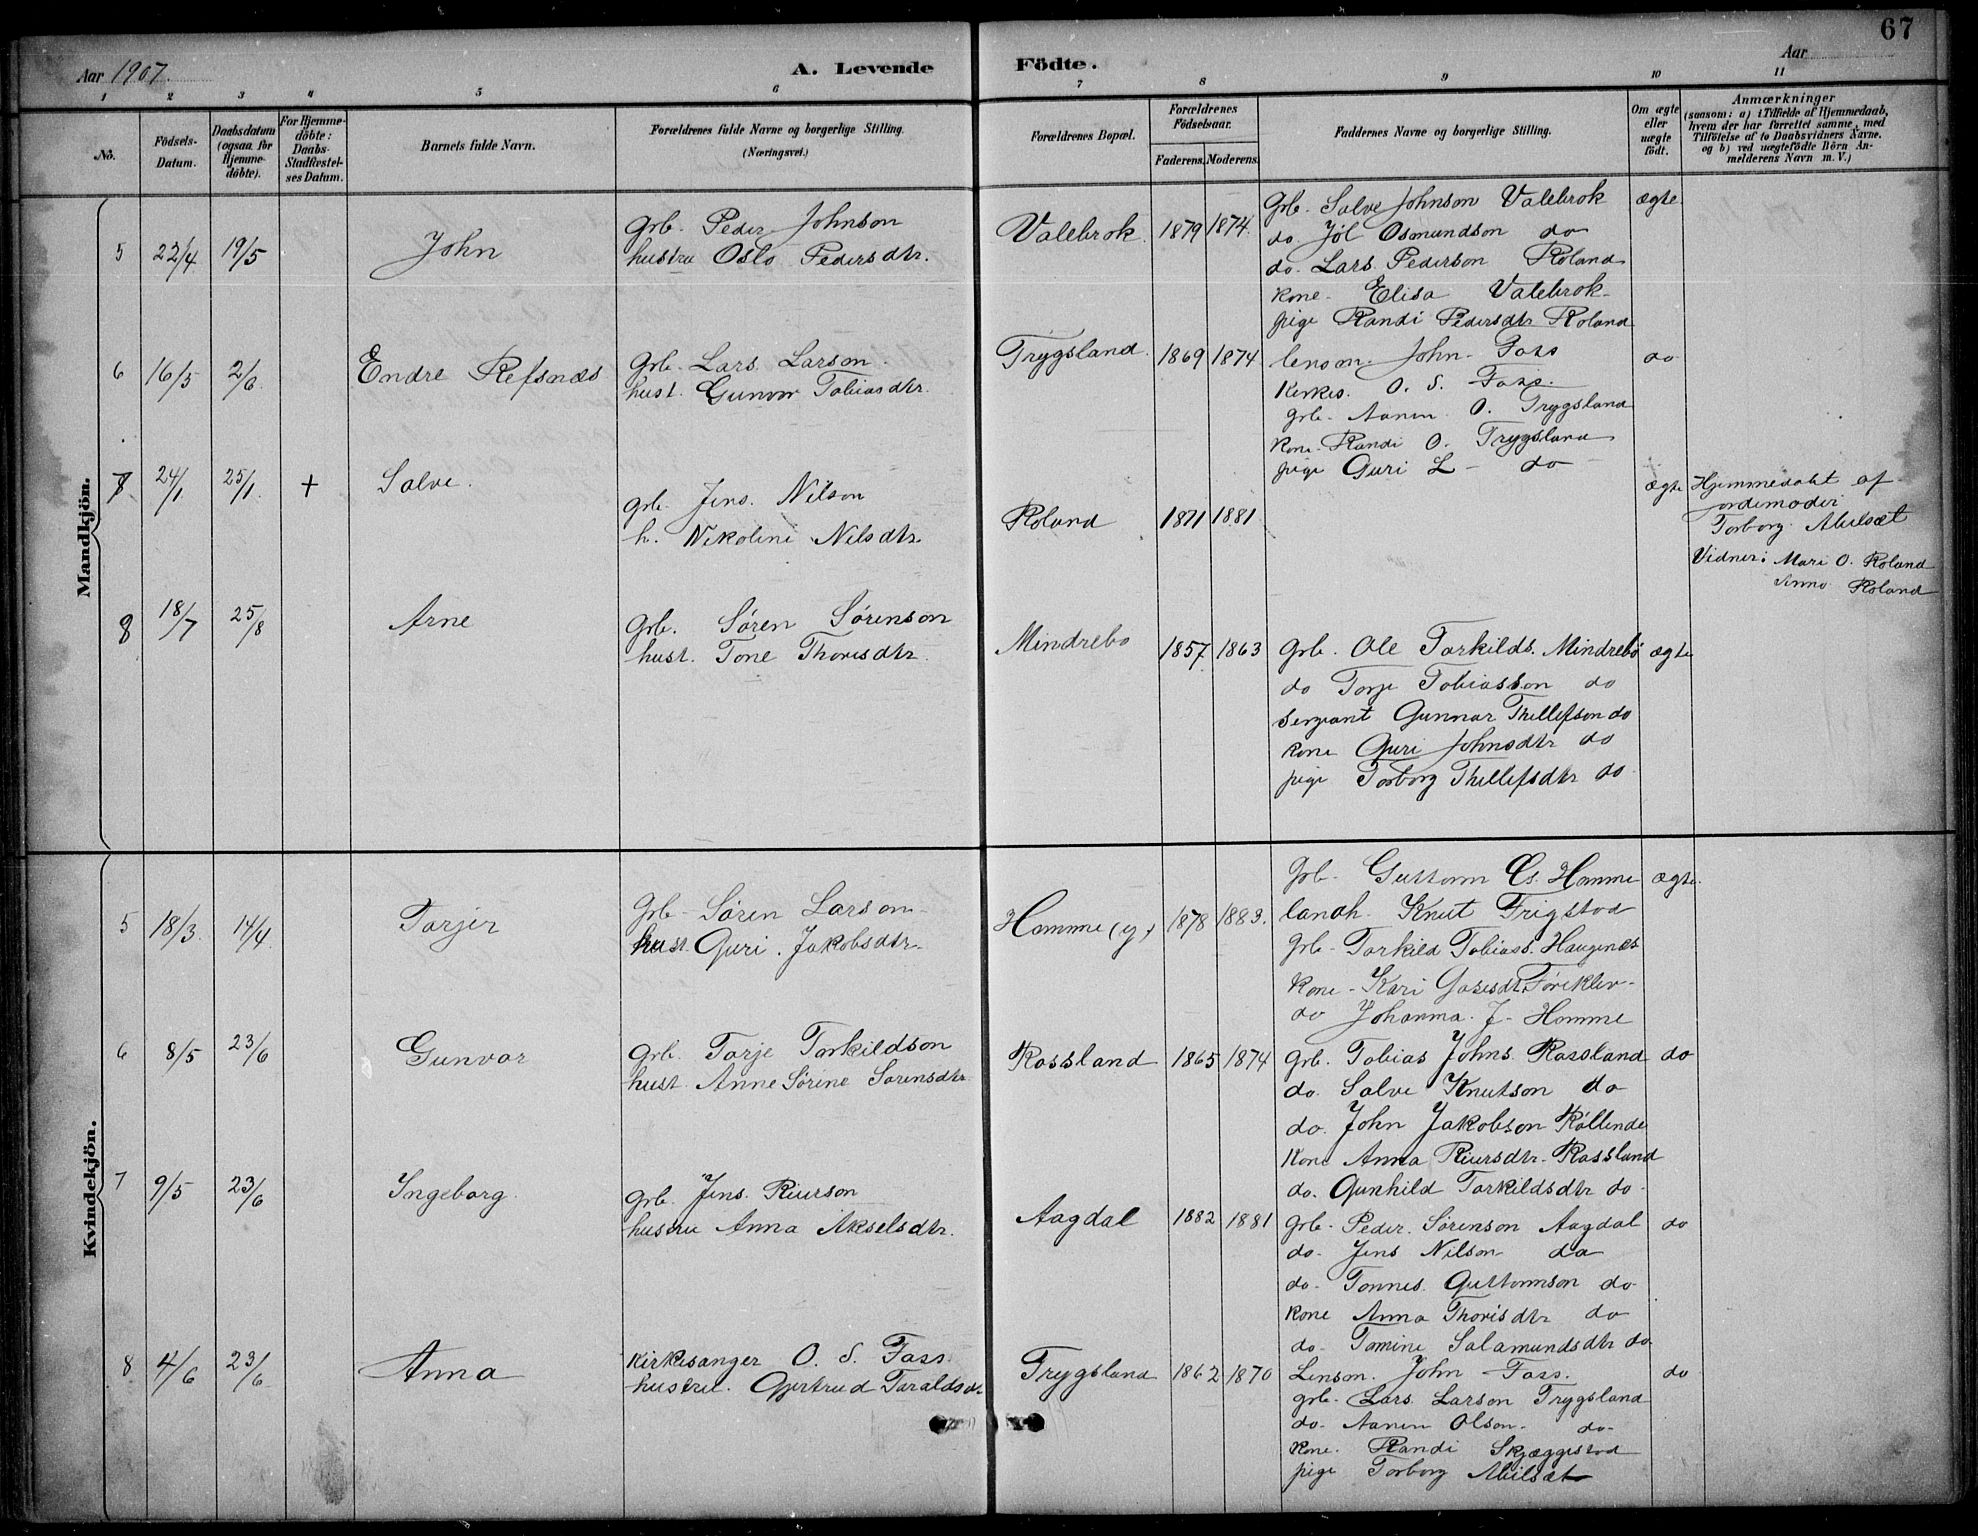 67
Aar 1907.
A. Levende Födte.
Aar
1 2 3 4 5 6 7 8 9 10 11
No.
Födsels-Datum.
Daabsdatum (ogsaa for Hjemme-döbte).
For Hjemme-döbte: Daabs-Stadfæstel-ses Datum.
Barnets fulde Navn.
Forældrenes fulde Navne og borgerlige Stilling.
(Næringsvei.)
Forældrenes Bopæl.
Forældrenes Födselsaar.
Faderens. Moderens.
Faddernes Navne og borgerlige Stilling.
Om ægte eller uægte födt.
Anmærkninger
(saasom: a) i Tilfælde af Hjemmedaab,
hvem der har forrettet samme, med
Tilföielse af to Daabsvidners Navne.
og b) ved uægtefödte Börn An-
melderens Navn m. V.)
Mandkjön.
5 22/4 19/5 John
Grb. Peder Johnson
hustru Oslo Pedersdtr.
Valebrok. 1879 1874.
Grb. Salve Johnson Valebrok ægte
do Jöl Osmundson do
do. Lars Pederson Roland
kone. Elisa Valebrok
pige Randi Pedersdtr Roland
6 16/5 2/6 Endre Refsnæs
Grb. Lars Larson
hust. Gunvor Tobiasdtr.
Trygsland. 1869 1874
lensm. John Foss do
Kirkes. O. S. Foss.
grb. Aanen O. Trygsland
kone Randi O. Trygsland
pige Guri L - do
7 24/1 25/1 + Salve.
grb. Jens Nilson
h. Nikoline Nilsdtr.
Roland 1871 1881 ægte
Hjemmedøbt af
jordemoder
Torborg Mulsæt
Vidner: Mari O. Roland
Anna Roland
8 18/7 25/8 Arne
Grb. Søren Sørenson
hust. Tone Thoresdtr.
Mindrebo 1857 1863
Grb. Ole Torkilds. Mindrebö ægte
do Torje Tobiasson do
Sergeant Gunnar Thellefson do
kone Guri Johnsdtr do
pige Torborg Thellefsdtr do
Kvindekjön.
5 18/3. 14/4. Torjer
Grb. Søren Larson
hust Guri Jakobsdtr.
Homme (y) 1878 1883.
Grb. Guttorm Homme ægte
landh. Knut Frigstad
grb. Torkild Tobiass. Haugenæs
kone Kari
do Johanna J. Homme
6 8/5 23/6 Gunvor
Grb. Torje Torkildson
hust. Anne Sørine Sorensdtr.
Rossland 1865 1874
grb. Tobias Johns. Rossland do
do. Salve Knutson do
do. John Jakobson
kone Anna Reiersdtr. Rossland
do. Gunhild Torkildsdtr do
7 9/5 23/6 Ingeborg
grb. Jens Reierson
hustru Anna Akselsdtr.
Aagdal 1882 1881
grb. Peder Sørenson Aagdal do
do. Jens Nilson do
do. Tonnes Guttormson do
kone Anna Thorisdtr do
do. Tomine Salamundsdtr do
8 4/6 23/6 Anna
Kirkesanger O. S. Foss
hustru. Gjertrud Taraldsd.
Trygsland 1862 1870
Lensm. John Foss. do
grb. Lars Larson Trygsland
do. Aanen Olson do
kone. Randi Skjæggestad
pige Torborg Mulsæt